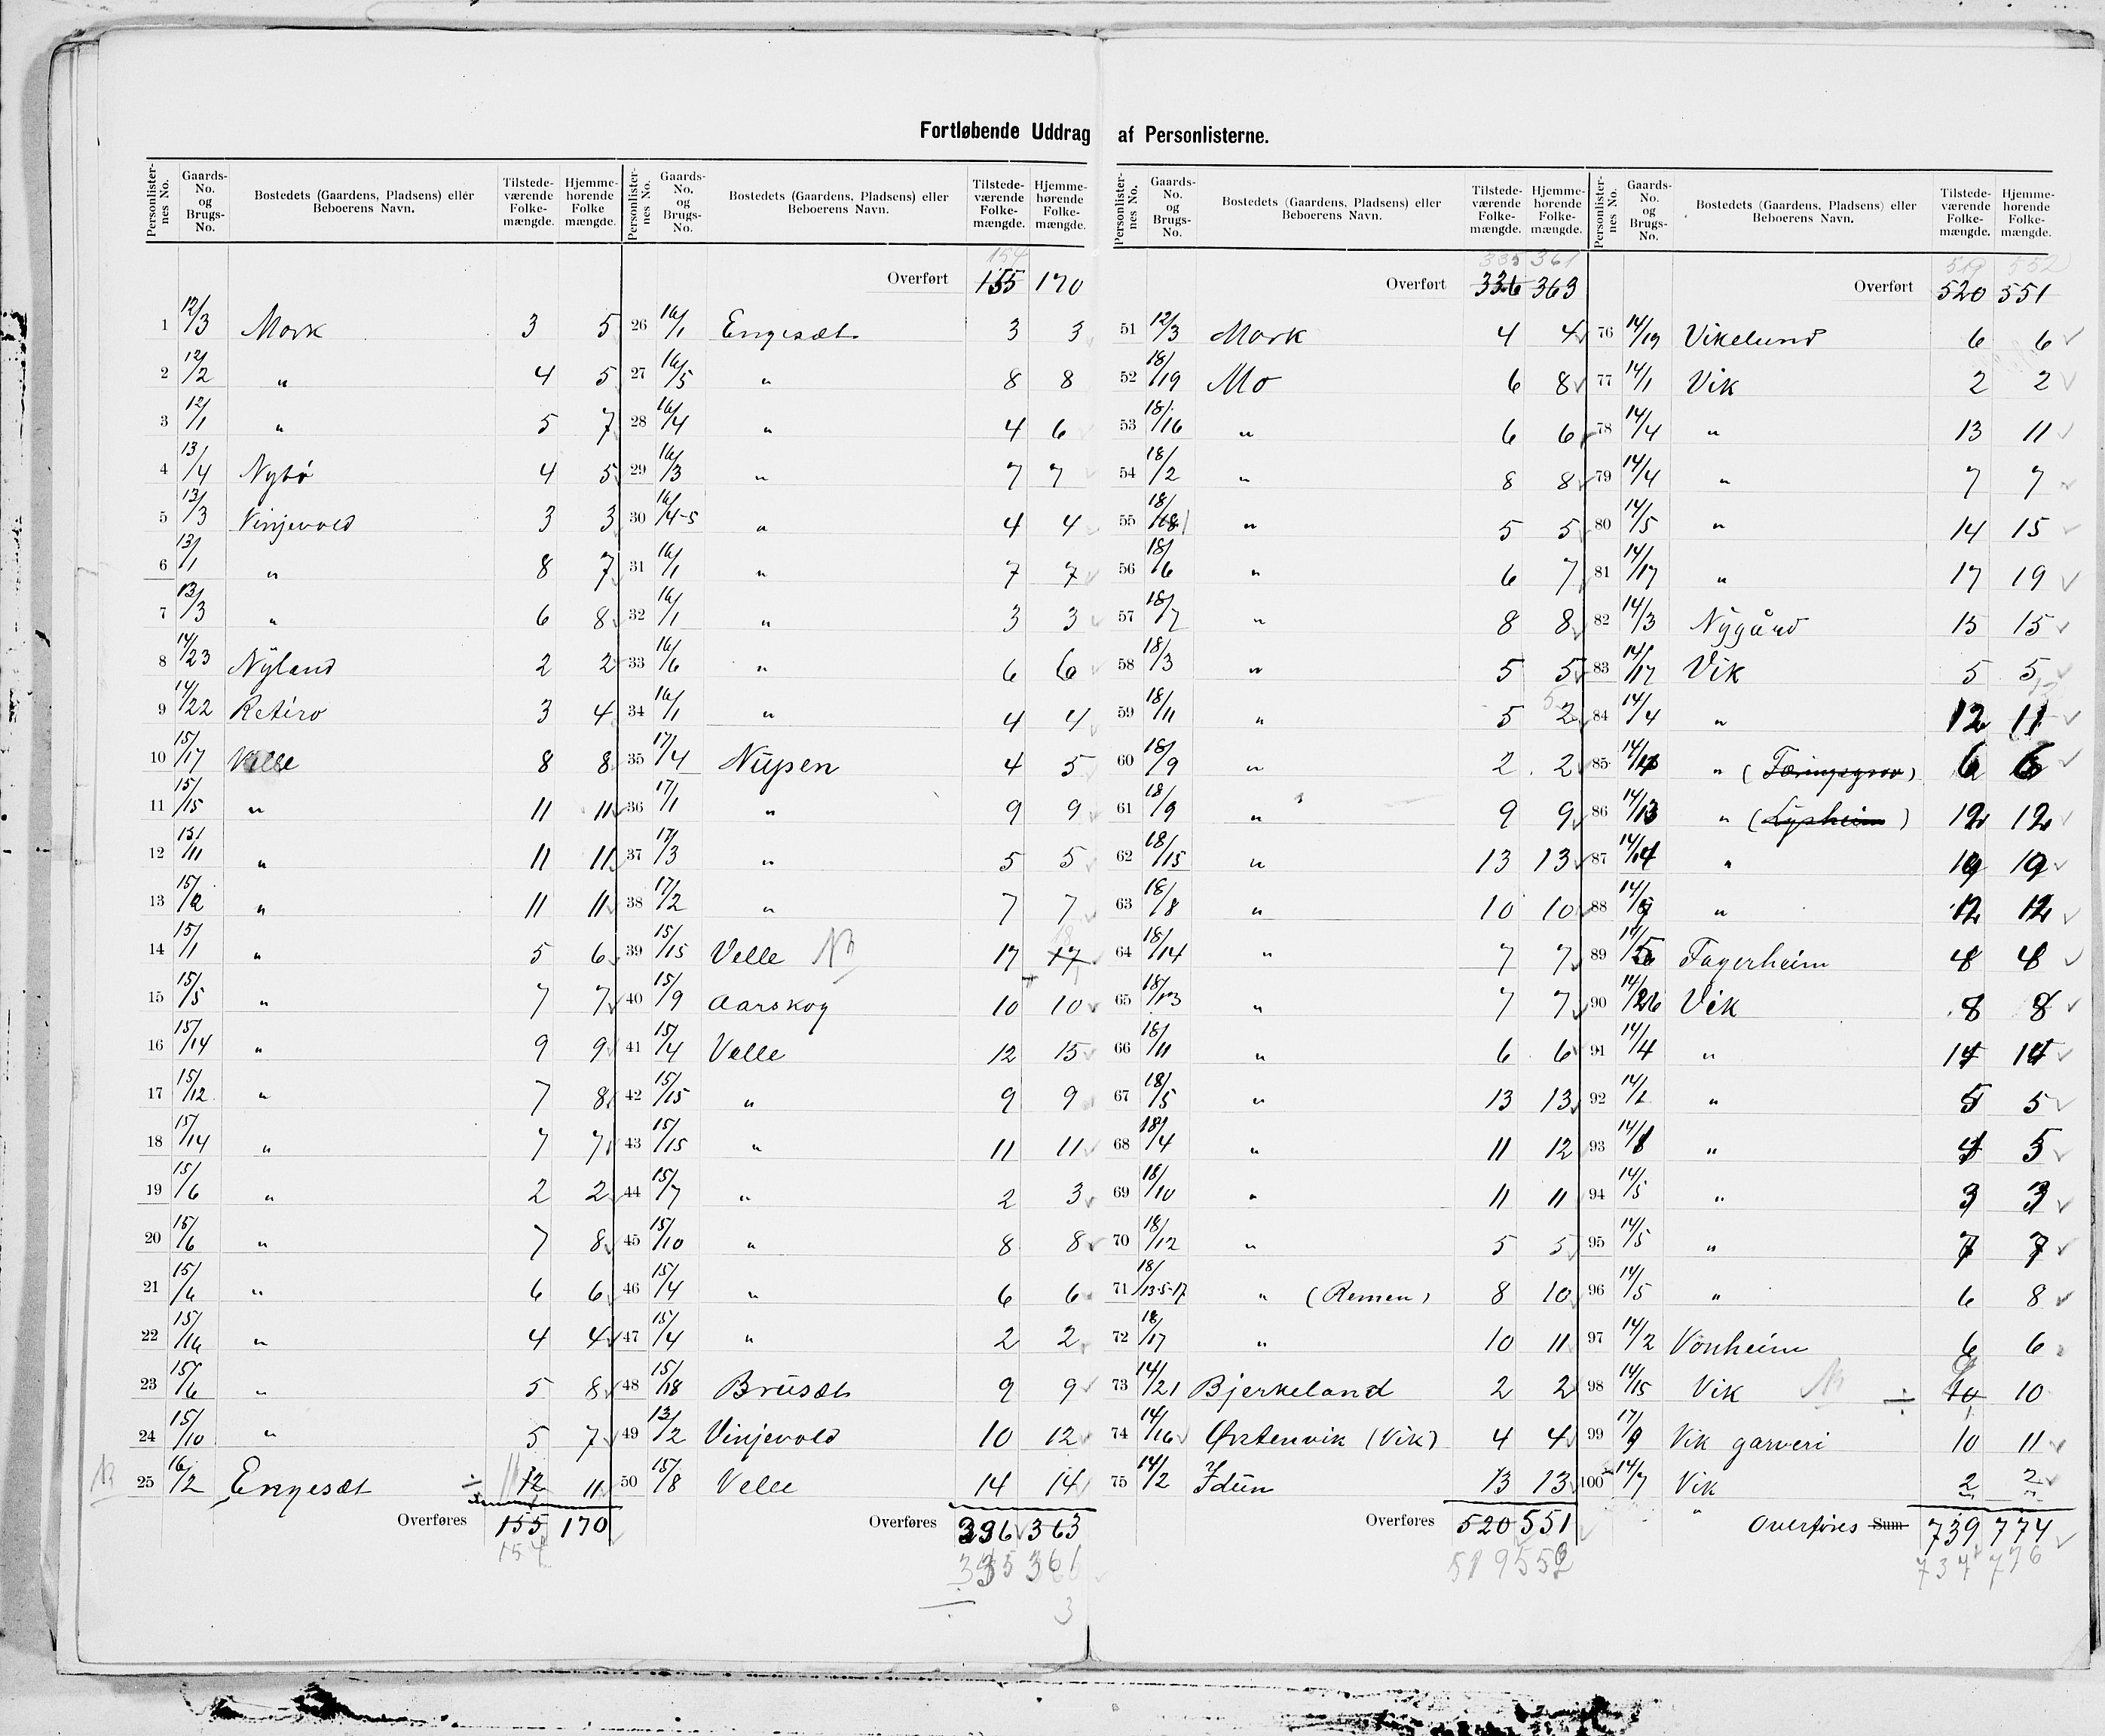 Fortløbende Uddrag af Personlisterne.
Personlisternes No. Gaards-No. og Brugs-No. Bostedets (Gaardens, Pladsens) eller Beboerens Navn. Tilstedeværende Folkemængde. Hjemmehørende Folkemængde.
1 12/3 Mork 3 5
2 12/2 " 4 5
3 12/1 " 5 7
4 13/4 Nybö 4 5
5 13/3 Vinjevold 3 3
6 13/1 " 8 7
7 13/3 " 6 8
8 14/23 Nyland 2 2
9 14/22 Retiro 3 4
10 15/17 Velle 8 8
11 15/15 " 11 11
12 15/11 " 11 11
13 15/2 " 11 11
14 15/1 " 5 6
15 15/5 " 7 7
16 15/14 " 9 9
17 15/12 " 7 8
18 15/14 " 7 7
19 15/6 " 2 2
20 15/6 " 7 8
21 15/6 " 6 6
22 15/16 " 4 4
23 15/6 " 5 8
24 15/10 " 5 7
25 16/2 Engesæt 12 11
Overføres 155 170
154
Personlisternes No. Gaards-No. og Brugs-No. Bostedets (Gaardens, Pladsens) eller Beboerens Navn. Tilstedeværende Folkemængde. Hjemmehørende Folkemængde.
154
Overført 155 170
26 16/1 Engesæt 3 3
27 16/5 " 8 8
28 16/4 " 4 6
29 16/3 " 7 7
30 16/4-5 " 4 4
31 16/1 " 7 7
32 16/1 " 3 3
33 16/6 " 6 6
34 16/1 " 4 4
35 17/4 Nupen 4 5
36 17/1 " 9 9
37 17/3 " 5 5
38 17/2 " 7 7
39 15/15 Velle 17 17 18
40 15/9 Aarskog 10 10
41 15/4 Velle 12 15
42 15/15 " 9 9
43 15/15 " 11 11
44 15/7 " 2 3
45 15/10 " 8 8
46 15/4 " 6 6
47 15/4 " 2 2
48 15/18 Brusæt 9 9
49 13/2 Vinjevold 10 12
50 15/8 Velle 14 14
Overføres 336 363
335 361
3
Personlisternes No. Gaards-No. og Brugs-No. Bostedets (Gaardens, Pladsens) eller Beboerens Navn. Tilstedeværende Folkemængde. Hjemmehørende Folkemængde.
335 361
Overført 336 363
51 12/3 Mork 4 4
52 18/19 Mo 6 8
53 18/16 " 6 6
54 18/2 " 8 8
55 18/18 " 5 5
56 18/6 " 6 7
57 18/7 " 8 8
58 18/3 " 5 5
59 18/11 " 5 2 5
60 18/9 " 2 2
61 18/9 " 9 9
62 18/15 " 13 13
63 18/8 " 10 10
64 18/14 " 7 7
65 18/13 " 7 7
66 18/11 " 6 6
67 18/5 " 13 13
68 18/4 " 11 12
69 18/10 " 11 11
70 18/12 " 5 5
71 18/13-5-17 " (Remen) 8 10
72 18/17 " 10 11
73 14/21 Bjerkeland 2 2
74 14/16 Ørstenvik (Vik) 4 4
75 14/2 Idun 13 13
Overføres 520 551
519 552
Personlisternes No. Gaards-No. og Brugs-No. Bostedets (Gaardens, Pladsens) eller Beboerens Navn. Tilstedeværende Folkemængde. Hjemmehørende Folkemængde.
519 552
Overført 520 551
76 14/19 Vikelund 6 6
77 14/1 Vik 2 2
78 14/4 " 13 11
79 14/4 " 7 7
80 14/5 " 14 15
81 14/17 " 17 19
82 14/3 Nygård 15 15
83 14/17 Vik 5 5
84 14/4 " 12 11
85 " 6 6
86 14/13 " (Lysheim) 12 12
87 14/14 " 19 19
88 " 12 12
89 Fagerheim 4 4
90 14/26 Vik 8 8
91 14/4 " 14 14
92 14/1 " 5 5
93 14/8 " 4 5
94 14/5 " 3 3
95 14/5 " 7 7
96 14/5 " 6 8
97 14/2 Vonheim 6 6
98 14/15 Vik 10 10
99 17/9 Vik garveri 10 11
100 14/7 Vik 2 2
" Overføres Sum 739 774
737 776